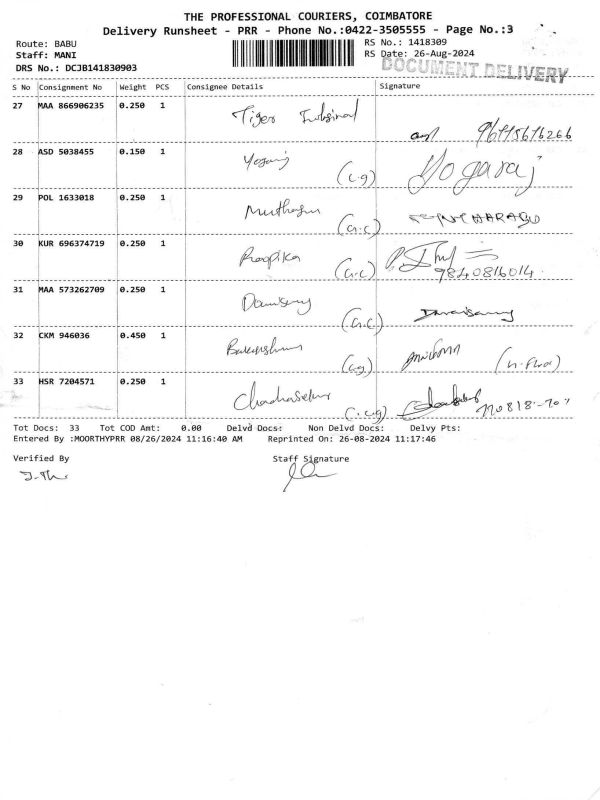 THE PROFESSIONAL COURIERS, COIMBATORE
Delivery Runsheet - PRR - Phone No.:0422-3505555 - Page No.:3
Route: BABU RS No.: 1418309
Staff: MANI RS Date: 26-Aug-2024
DRS No.: DCJB141830903 DOCUMENT DELIVERY
S No Consignment No Weight PCS Consignee Details Signature
27 MAA 866906235 0.250 1 Tiger
28 ASD 5038455 0.150 1 (c.g) Yogaraj
29 POL 1633018 0.250 1 (G.C)
30 KUR 696374719 0.250 1 Roopika (G.C) 9840816014
31 MAA 573262709 0.250 1 (G.C)
32 CKM 946036 0.450 1
33 HSR 7204571 0.250 1
Tot Docs: 33 Tot COD Amt: 0.00 Delvd Docs: Non Delvd Docs: Delvy Pts:
Entered By :MOORTHYPRR 08/26/2024 11:16:40 AM Reprinted On: 26-08-2024 11:17:46
Verified By Staff Signature